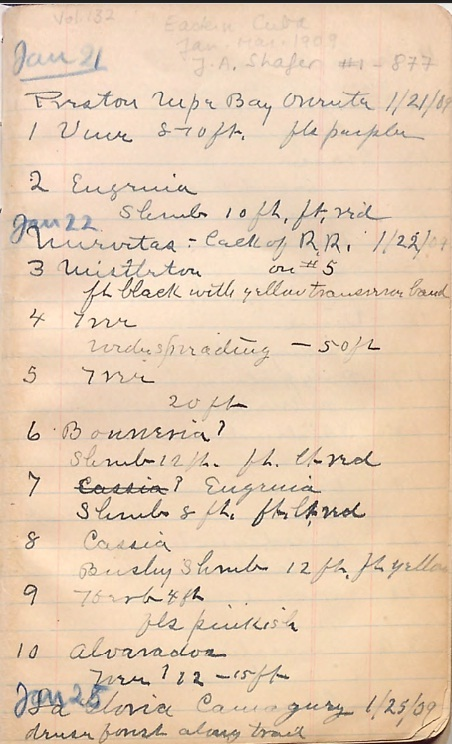 Vol 132
Eastern Cuba
Jan. Mar. 1909
J.A. Shafer #1-877
Jan 21
Preston Nipe Bay Oriente 1/21/09
1 Vine 8-10 ft. fls purple
2 Eugenia
Shrub 10 ft, ft, red
Jan 22
- Back of R.R. 1/22/09
3 Mistleton on #5
ft black with yellow transverse band
4 Tree
wide spreading - 50 ft
5 Tree
20 ft
6 Bonneria?
Shrub 12 ft. ft. lt red
7 Cassia? Eugenia
Shrub 8 ft. ft. lt red
8 Cassia
Bushy Shrub 12 ft, ft yellow
9 Herb 4 ft
fls pinkish
10 Alvaradoa
Tree? 12 - 15 ft
Jan 25
La Gloria Camaguey 1/25/09
dense forest along trail